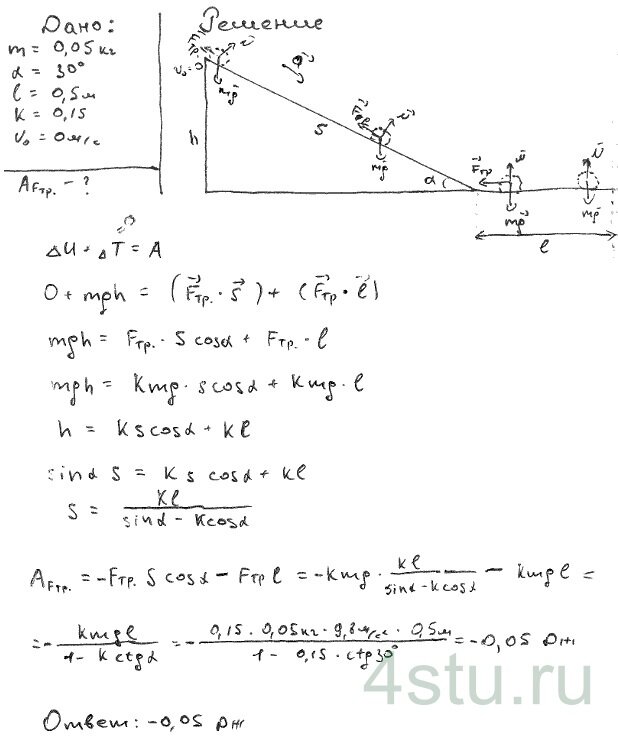 Дано:
Решение
m = 0,05 кг
α = 30°
l = 0,5 м
k = 0,15
v₀ = 0 м/с
A Fтр. - ?
v₀ = 0
h
S
α
l
mg
Fтр
N
v
ΔU + ΔT = A
0 + mgh = (Fтр. · s) + (Fтр · l)
mgh = Fтр. · S cosα + Fтр. · l
mgh = kmg · s cosα + kmg · l
h = k s cosα + kl
sinα s = k s cosα + kl
S = kl / (sinα - k cosα)
A Fтр. = -Fтр. S cosα - Fтр l = -kmg · kl / (sinα - k cosα) - kmg l =
= - kmgl / (1 - k ctgα) = - 0,15 · 0,05 кг · 9,8 м/с² · 0,5 м / (1 - 0,15 · ctg 30°) = -0,05 Дж
4stu.ru
Ответ: -0,05 Дж